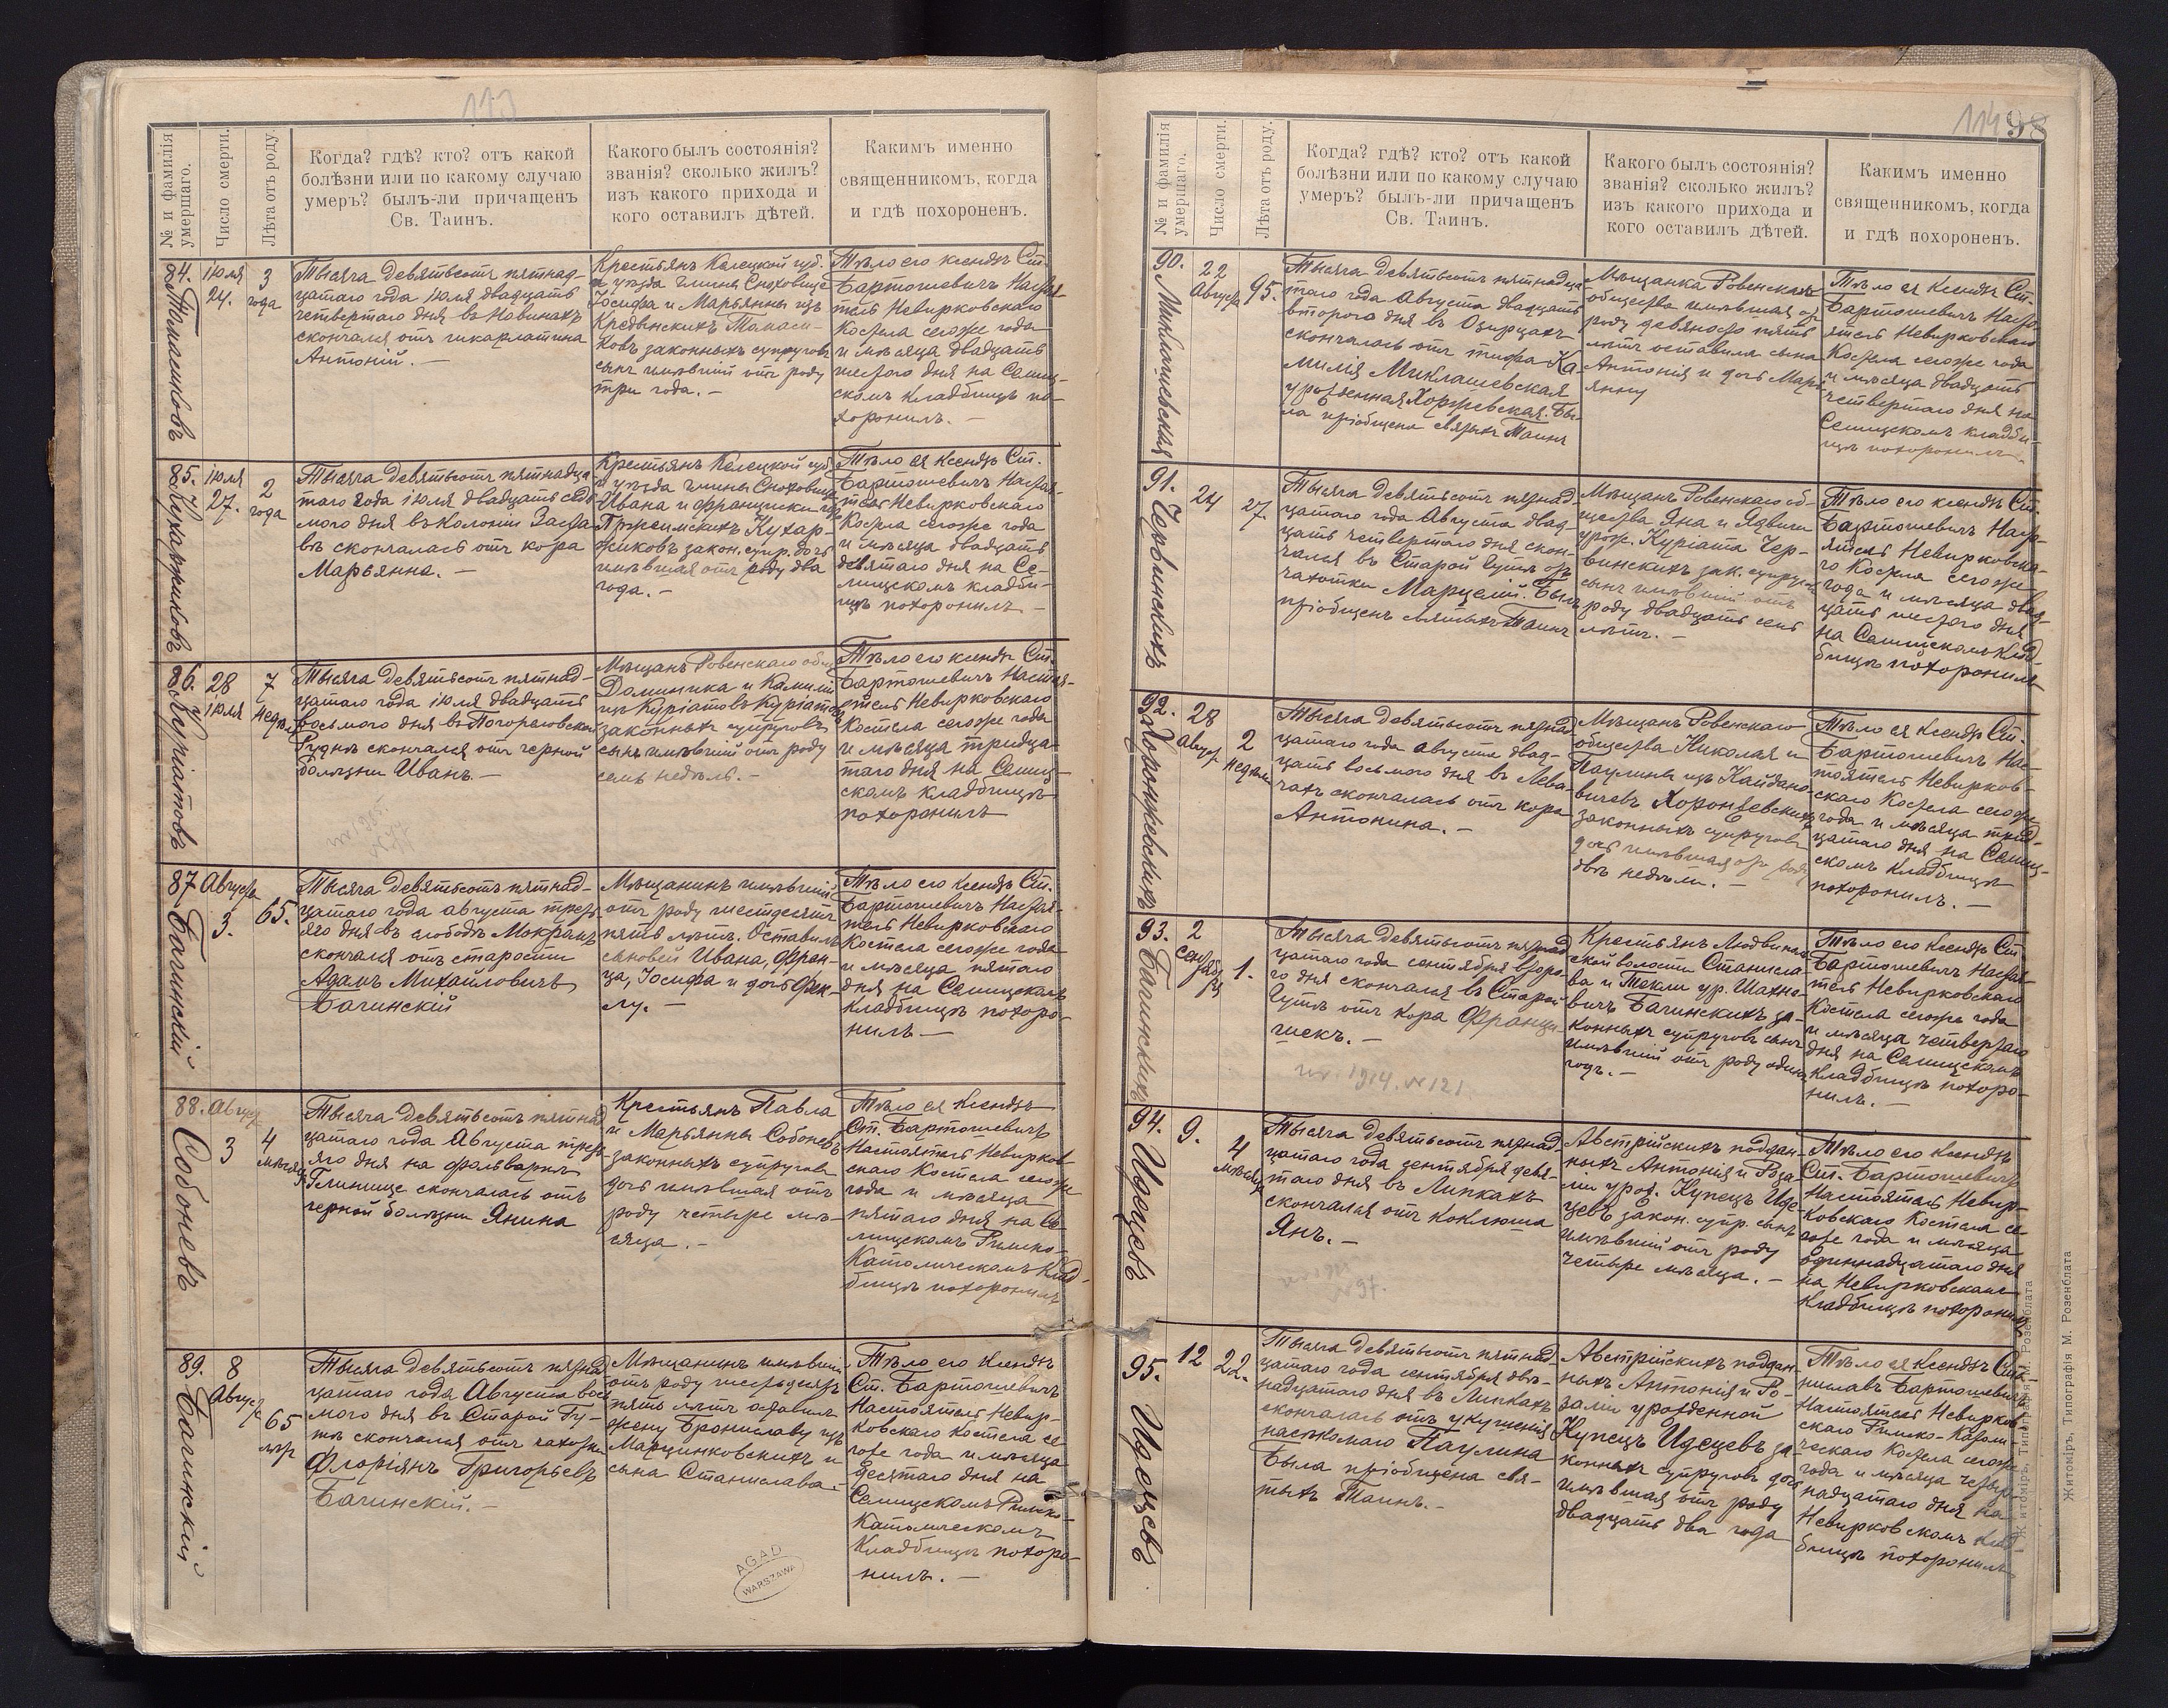 113
№ и фамилія умершаго.
Число смерти.
Лѣта отъ роду.
Когда? гдѣ? кто? отъ какой
болѣзни или по какому случаю
умеръ? былъ-ли причащенъ
Св. Таинъ.
Какого былъ состоянія?
званія? сколько жилъ?
изъ какого прихода и
кого оставилъ дѣтей.
Какимъ именно
священникомъ, когда
и гдѣ похороненъ.
84. Томасиковъ
Іюля
24.
3
года
Тысяча девятьсотъ пятнад-
цатаго года Іюля двадцать
четвертаго дня въ Новинахъ
скончался отъ шкарлатина
Антоній. —
Крестьянъ Келецкой губ.
и уѣзда гмины Сноховице
Іосифа и Марьянны изъ
Томаси-
ковъ законныхъ супруговъ
сынъ имѣвшій отъ роду
три года. —
Тѣло его ксендзъ Ст.
Бартошевичъ Настоя-
тель Невирковскаго
Костела сегоже года
и мѣсяца двадцать
шестого дня на Селищ-
скомъ кладбищѣ по-
хоронилъ. —
85. Кухарчиковъ
Іюля
27.
2
года
Тысяча девятьсотъ пятнадца-
таго года Іюля двадцать седь-
мого дня въ Колоніи Заста-
вѣ скончалась отъ кора
Марьянна. —
Крестьянъ Келецкой губ.
и уѣзда гмины Сноховице
Ивана и Франциски изъ
Кухар-
чиковъ закон. супр. дочь
имѣвшая отъ роду два
года. —
Тѣло ея ксендзъ Ст.
Бартошевичъ Настоя-
тель Невирковскаго
Костела сегоже года
и мѣсяца двадцать
девятаго дня на Се-
лищскомъ кладби-
щѣ похоронилъ —
86. Куріатовъ
28
Іюля
7
недѣль
Тысяча девятьсотъ пятнад-
цатаго года Іюля двадцать
восьмого дня въ Погореловской
Руднѣ скончался отъ черной
болѣзни Иванъ. —
Мѣщанъ Ровенскаго общ.
Доминика и Камиліи
изъ Куріатовъ Куріатовъ
законныхъ супруговъ
сынъ имѣвшій отъ роду
семь недѣль. —
Тѣло его ксендзъ Ст.
Бартошевичъ Настоя-
тель Невирковскаго
Костела сегоже года
и мѣсяца тридца-
таго дня на Селищ-
скомъ кладбищѣ
похоронилъ
87 Багинскій
Августа
3.
65.
Тысяча девятьсотъ пятнад-
цатаго года августа треть-
яго дня въ слободѣ Мокрамъ
скончался отъ старости
Адамъ Михайловичъ
Багинскій
Мѣщанинъ имѣвшій
отъ роду шестдесятъ
пять лѣтъ. Оставилъ
сыновей Ивана, Фран-
ца, Іосифа и дочь Фек-
лу. —
Тѣло его ксендзъ Ст.
Бартошевичъ Настоя-
тель Невирковскаго
Костела сегоже года
и мѣсяца пятаго
дня на Селищскомъ
кладбищѣ похоро-
нилъ —
88. Собоневъ
Август
3
4
мѣсяц.
Тысяча девятьсотъ пятнад-
цатаго года Августа треть-
яго дня на фольваркѣ
Глинище скончалась отъ
черной болѣзни Янина
Крестьянъ Павла
и Марьянны Собоневъ
законныхъ супруговъ
дочь имѣвшая отъ
роду четыре мѣ-
сяца. —
Тѣло ея ксендзъ
Ст. Бартошевичъ
Настоятель Невирков-
скаго Костела сегоже
года и мѣсяца
пятаго дня на Се-
лищскомъ Римско-
Католическомъ клад-
бищѣ похоронилъ
89. Багинскій
8
Август
65
лѣт
Тысяча девятьсотъ пятнад-
цатаго года Августа вось-
мого дня въ Старой Гу-
тѣ скончался отъ чахотки
Флоріянъ Григорьевъ
Багинскій. —
Мѣщанинъ имѣвшій
отъ роду шестьдесятъ
пять лѣтъ оставилъ
жену Брониславу изъ
Марцинковскихъ и
сына Станислава. —
Тѣло его ксендзъ
Ст. Бартошевичъ
Настоятель Невир-
ковскаго Костела се-
гоже года и мѣсяца
десятаго дня на
Селищскомъ Римско-
Католическомъ
Кладбищѣ похоро-
нилъ. —
AGAD
WARSZAWA
114 98
№ и фамилія умершаго.
Число смерти.
Лѣта отъ роду.
Когда? гдѣ? кто? отъ какой
болѣзни или по какому случаю
умеръ? былъ-ли причащенъ
Св. Таинъ.
Какого былъ состоянія?
званія? сколько жилъ?
изъ какого прихода и
кого оставилъ дѣтей.
Какимъ именно
священникомъ, когда
и гдѣ похороненъ.
90. Миклашевская
22
Августа
95.
Тысяча девятьсотъ пятнадца-
таго года Августа двадцать
второго дня въ Озирцахъ
скончалась отъ тифа Ка-
милія Миклашевская
урожденная Хоржевская. Бы-
ла пріобщена святыхъ Таинъ
Мѣщанка Ровенскаго
общества имѣвшая отъ
роду девяносто пять
лѣтъ оставила сына
Антонія и дочь Марь-
янну
Тѣло ея ксендзъ Ст.
Бартошевичъ Насто-
ятель Невирковскаго
Костела сегоже года
и мѣсяца двадцать
четвертаго дня на
Селищскомъ кладби-
щѣ похоронилъ.
91. Червинскихъ
24
27.
Тысяча девятьсотъ пятнад-
цатаго года Августа двад-
цать четвертаго дня скон-
чался въ Старой Гутѣ отъ
чахотки Марцелій. Былъ
пріобщенъ святыхъ Таинъ
Мѣщанъ Ровенскаго об-
щества Яна и Ядвиги
урож. Куріата Чер-
винскихъ зак. супруговъ
сынъ имѣвшій отъ
роду двадцать семь
лѣтъ. —
Тѣло его ксендзъ Ст.
Бартошевичъ Насто-
ятель Невирковска-
го Костела сегоже
года и мѣсяца двад-
цать шестого дня
на Селищскомъ клад-
бищѣ похоронилъ
92. Хоронжевскихъ
28
август
2
недѣли
Тысяча девятьсотъ пятнад-
цатаго года августа двад-
цать восьмого дня въ Лева-
чахъ скончалась отъ кора
Антонина. —
Мѣщанъ Ровенскаго
общества Николая и
Паулины изъ Кайдано-
вичевъ Хоронжевскихъ
законныхъ супруговъ
дочь имѣвшая отъ роду
двѣ недѣли. —
Тѣло ея ксендзъ Ст.
Бартошевичъ Нас-
тоятель Невирков-
скаго Костела сегоже
года и мѣсяца трид-
цатаго дня на Селищ-
скомъ кладбищѣ
похоронилъ. —
93. Багинскихъ
2
сентяб
ря
1.
Тысяча девятьсотъ пятнад-
цатаго года сентября второ-
го дня скончался въ Старой
Гутѣ отъ кора Франци-
шекъ. —
ur. 1914. № 121
Крестьянъ Людвипол-
ской волости Станисла-
ва и Текли ур. Шахно-
вичъ Багинскихъ за-
конныхъ супруговъ сынъ
имѣвшій отъ роду одинъ
годъ. —
Тѣло его ксендзъ Ст.
Бартошевичъ Настоя-
тель Невирковскаго
Костела сегоже года
и мѣсяца четвертаго
дня на Селищскомъ
кладбищѣ похоро-
нилъ. —
94. Идзецевъ
9.
4
мѣсяца
Тысяча девятьсотъ пятнад-
цатаго года сентября девя-
таго дня въ Липкахъ
скончался отъ коклюша
Янъ. —
№ 97.
Австрійскихъ поддан-
ныхъ Антонія и Роза-
ліи урож. Купецъ Идзе-
цевъ закон. супр. сынъ
имѣвшій отъ роду
четыре мѣсяца. —
Тѣло его ксендзъ
Ст. Бартошевичъ
Настоятель Невир-
ковскаго Костела се-
гоже года и мѣсяца
одиннадцатаго дня
на Невирковскомъ
кладбищѣ похоронилъ
95. Идзецевъ
12
22.
Тысяча девятьсотъ пятнад-
цатаго года сентября двѣ-
надцатаго дня въ Липкахъ
скончалась отъ укушенія
насѣкомаго Паулина
Была пріобщена свя-
тыхъ Таинъ. —
Австрійскихъ поддан-
ныхъ Антонія и Ро-
заліи урожденной
Купецъ Идзецевъ за-
конныхъ супруговъ дочь
имѣвшая отъ роду
двадцать два года
Тѣло ея ксендзъ Ста-
ниславъ Бартошевичъ
Настоятель Невирков-
скаго Римско-Католи-
ческаго Костела сегоже
года и мѣсяца четыр-
надцатаго дня на
Невирковскомъ клад-
бищѣ похоронилъ
Житоміръ, Типографія М. Розенблата
Житоміръ, Типографія М. Розенблата